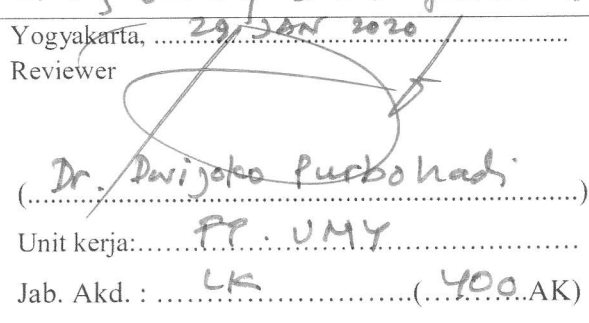 Yogyakarta, 29 JAN 2020
Reviewer
(Dr. Dwijoko Purbohadi)
Unit kerja: FT. UMY
Jab. Akd. : LK (400 AK)